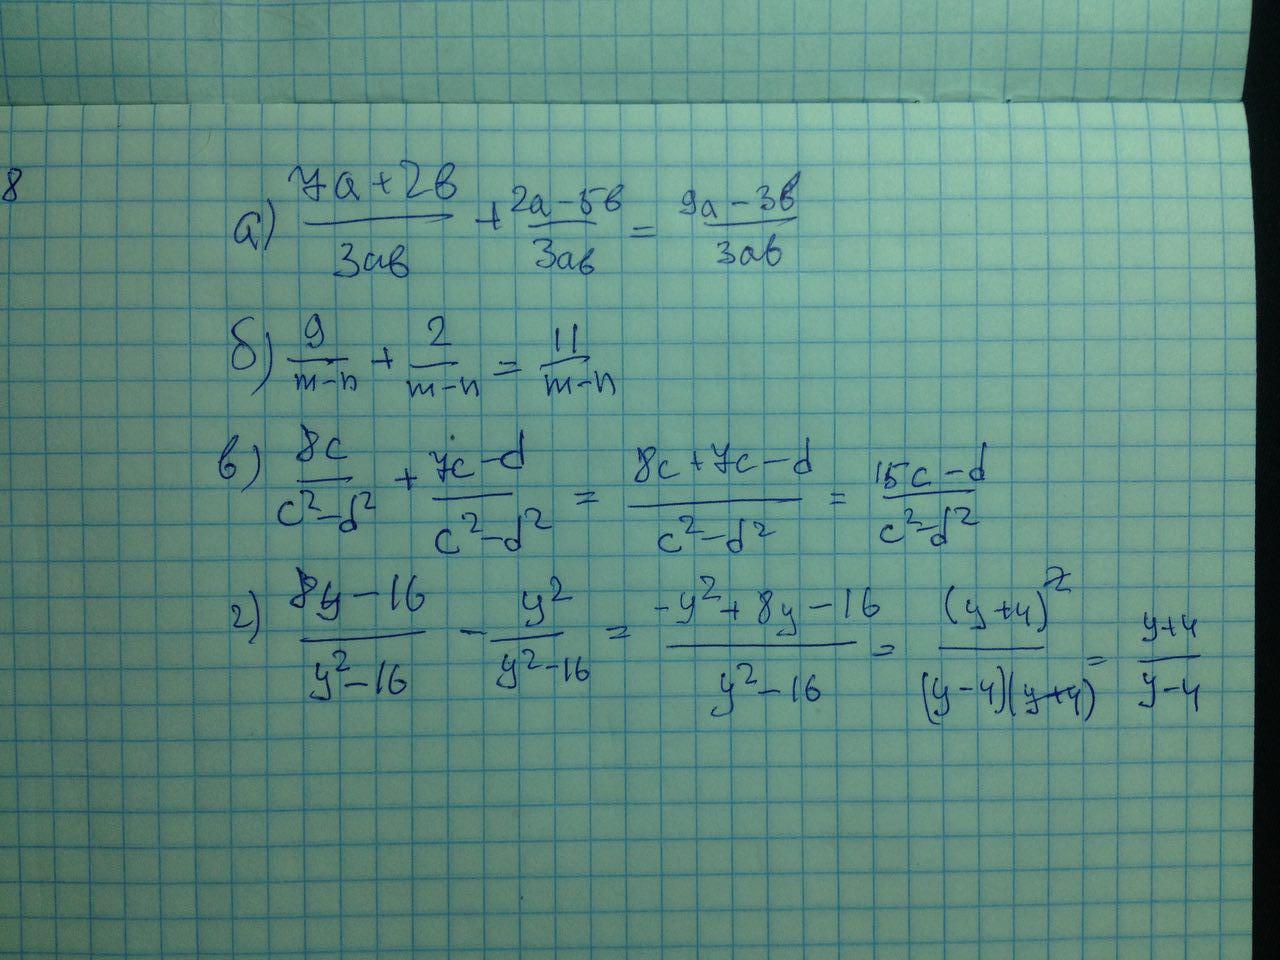 8
а) (7a+2b)/(3ab) + (2a-5b)/(3ab) = (9a-3b)/(3ab)
б) 9/(m-n) + 2/(m-n) = 11/(m-n)
в) 8c/(c²-d²) + (7c-d)/(c²-d²) = (8c+7c-d)/(c²-d²) = (15c-d)/(c²-d²)
г) (8y-16)/(y²-16) - y²/(y²-16) = (-y²+8y-16)/(y²-16) = (y+4)²/((y-4)(y+4)) = (y+4)/(y-4)